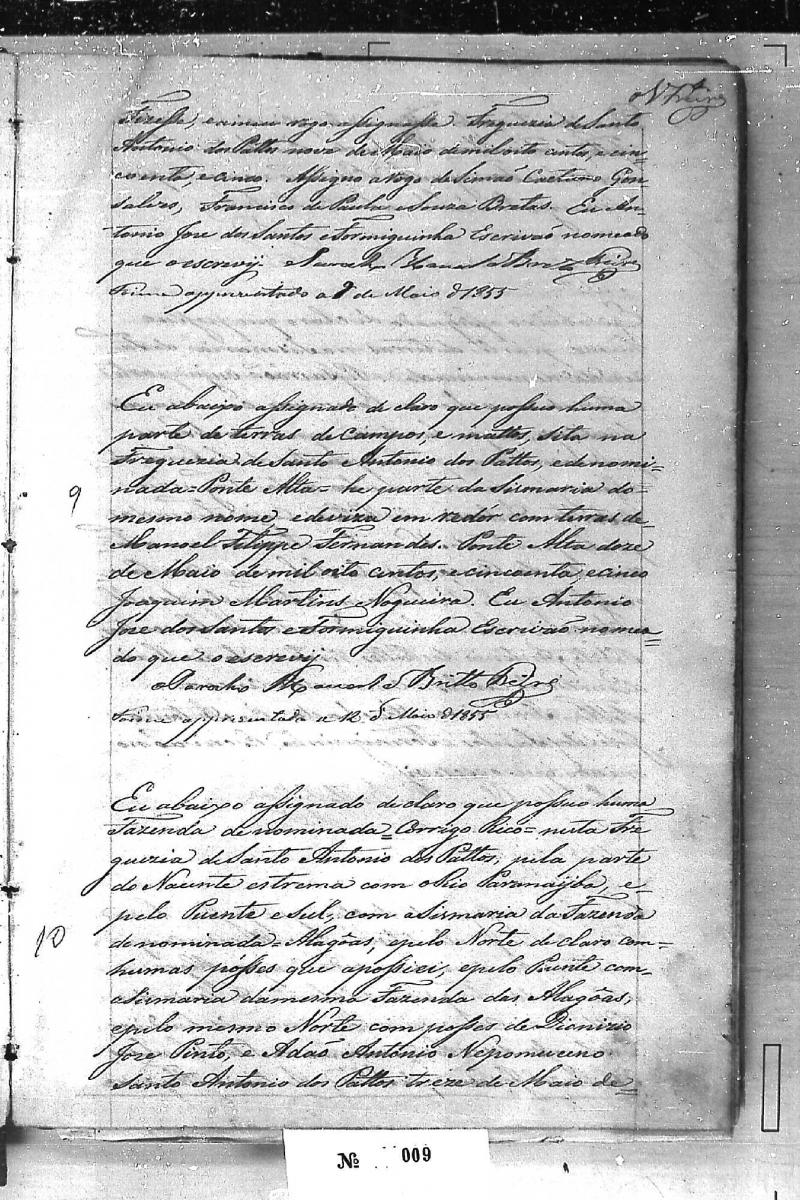 Freire
Fizesse, e a meu rogo assignasse. Freguezia de Santo
Antonio dos Pattos nove de Maio de mil oito centos, e cin=
coenta, e cinco. Assigno a rogo de Simaõ Caetano Gon=
salves, Francisco de Paula e Souza Bretas. Eu An=
tonio Jose dos Santos e Formiguinha Escrivaõ nomeado
que o escrevij. o Parocho Manoel de Brito Freire
Foi me appresentado a 9 de Maio d 1855
Eu abaixo assignado de claro que possuo huma
parte de terras de Campos, e mattos, sita na
Freguezia de Santo Antonio dos Pattos, e denomi=
nada=Ponte Alta= he parte da Sismaria do=
9
mesmo nome, e deviza em redór com terras de
Manoel Filippe Fernandes. Ponte Alta doze
de Maio de mil oito centos, e cincoenta, e cinco
Joaquim Martins Nogueira. Eu Antonio
Jose dos Santos e Formiguinha Escrivaõ nomea=
do que o escrevij
o Parocho Manoel d Britto Freire
Foi me appresentada a 12 d Maio d 1855
Eu abaixo assignado de claro que possuo huma
Fazenda de nominada=Corrigo Rico=nesta Fre
guezia de Santo Antonio dos Pattos, pela parte
do Nacente estrema com o Rio Paranaÿba, e=
pelo Puente e Sul, com a Sismaria da Fazenda
10
de nominada=Alagôas, e pelo Norte de claro com=
humas pósses que apossiei, e pelo Puente com
a Sismaria da mesma Fazenda das Alagôas,
e pelo mesmo Norte com posses de Dionizio
Jose Pinto, e Adaõ Antonio Nepomuceno
Santo Antonio dos Pattos treze de Maio de=
Nº 009